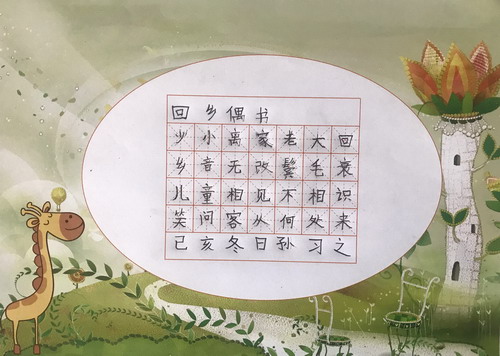 回乡偶书
少小离家老大回
乡音无改鬓毛衰
儿童相见不相识
笑问客从何处来
己亥冬日孙习之